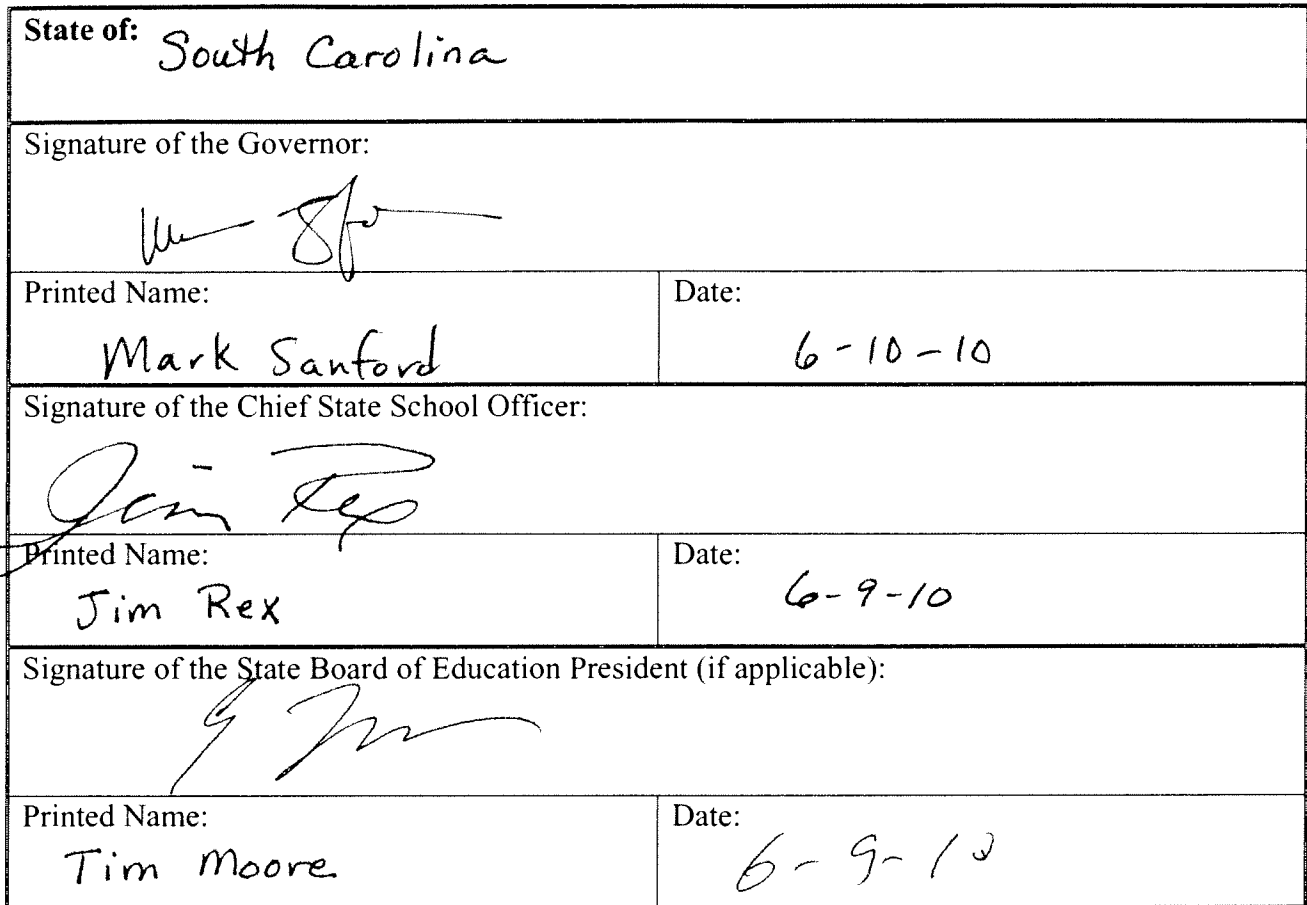 State of: South Carolina
Signature of the Governor:
Printed Name: Date:
Mark Sanford 6-10-10
Signature of the Chief State School Officer:
Jim Rex
Printed Name: Date:
Jim Rex 6-9-10
Signature of the State Board of Education President (if applicable):
Printed Name: Date:
Tim Moore 6-9-10